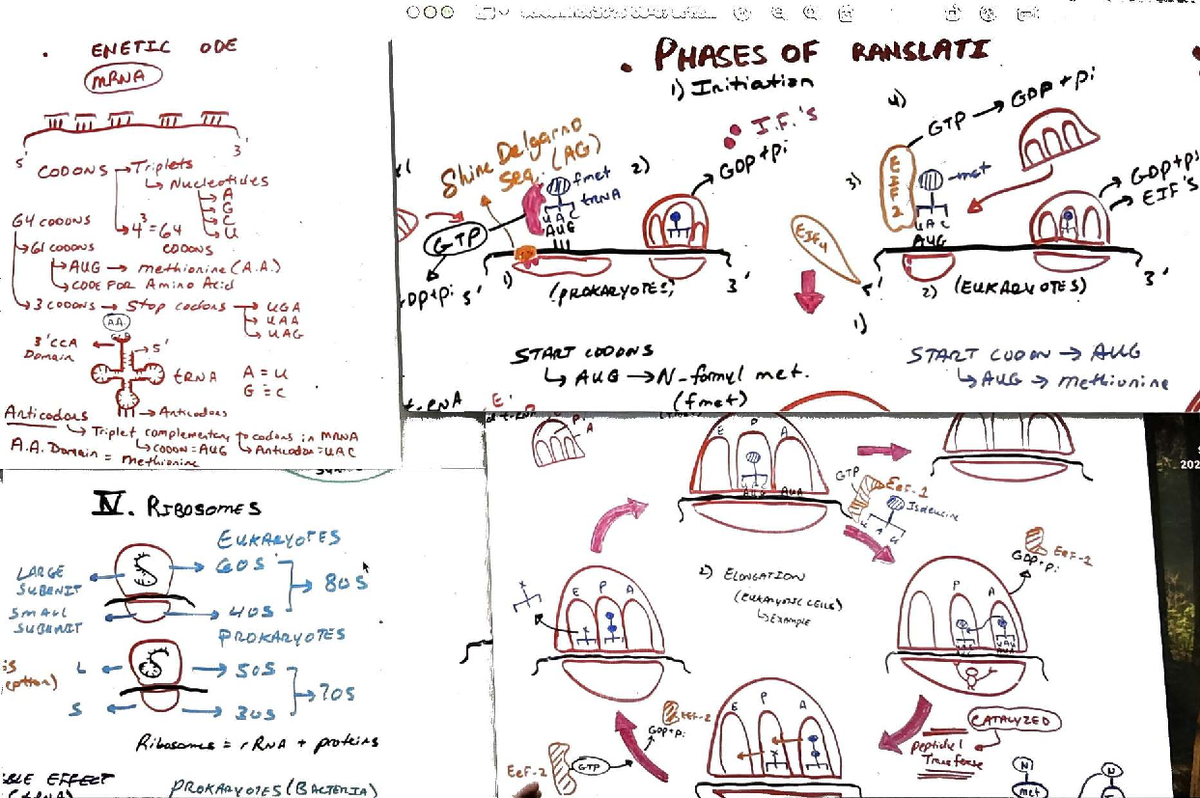 ENETIC ODE
mRNA
5' 3'
CODONS → Triplets
Nucleotides
A
G
C
U
4³=64
CODONS
64 CODONS
61 CODONS
AUG → methionine (A.A.)
CODE FOR Amino Acid
3 CODONS → Stop codons → UGA
UAA
UAG
A.A.
3'CCA
Domain
5'
tRNA
A = U
G ≡ C
→ Anticodons
Anticodons
Triplet complementary to codons in mRNA
CODON = AUG
Anticodon = UAC
A.A. Domain =
methionine
PHASES OF RANSLATI
1) Initiation
I.F.'s
Shine Delgarno
Seq. (AG)
fmet
tRNA
UAC
AUG
GTP
GDP+Pi
2)
GDP+Pi
1)
5' 3'
(PROKARYOTES)
START CODONS
AUG → N-formyl met.
(fmet)
4)
GTP → GDP+Pi
3)
EIF2
met
UAC
AUG
GDP+Pi
EIF's
EIF4
5' 3'
2) (EUKARYOTES)
1)
START CODON → AUG
AUG → methionine
IV. RIBOSOMES
EUKARYOTES
LARGE
SUBUNIT
60S
80S
SMALL
SUBUNIT
40S
PROKARYOTES
L
50S
70S
S
30S
Ribosomes = rRNA + proteins
BLE EFFECT
PROKARYOTES (BACTERIA)
P
A
E P A
AUG AUA
GTP
EeF-1
Isoleucine
UAU
EeF-1
GDP+Pi
2) ELONGATION
(EUKARYOTIC CELLS)
EXAMPLE
E P A
P A
CATALYZED
Peptidyl
Transferase
E P A
EeF-2
GDP+Pi
EeF-2
GTP
N
met
N